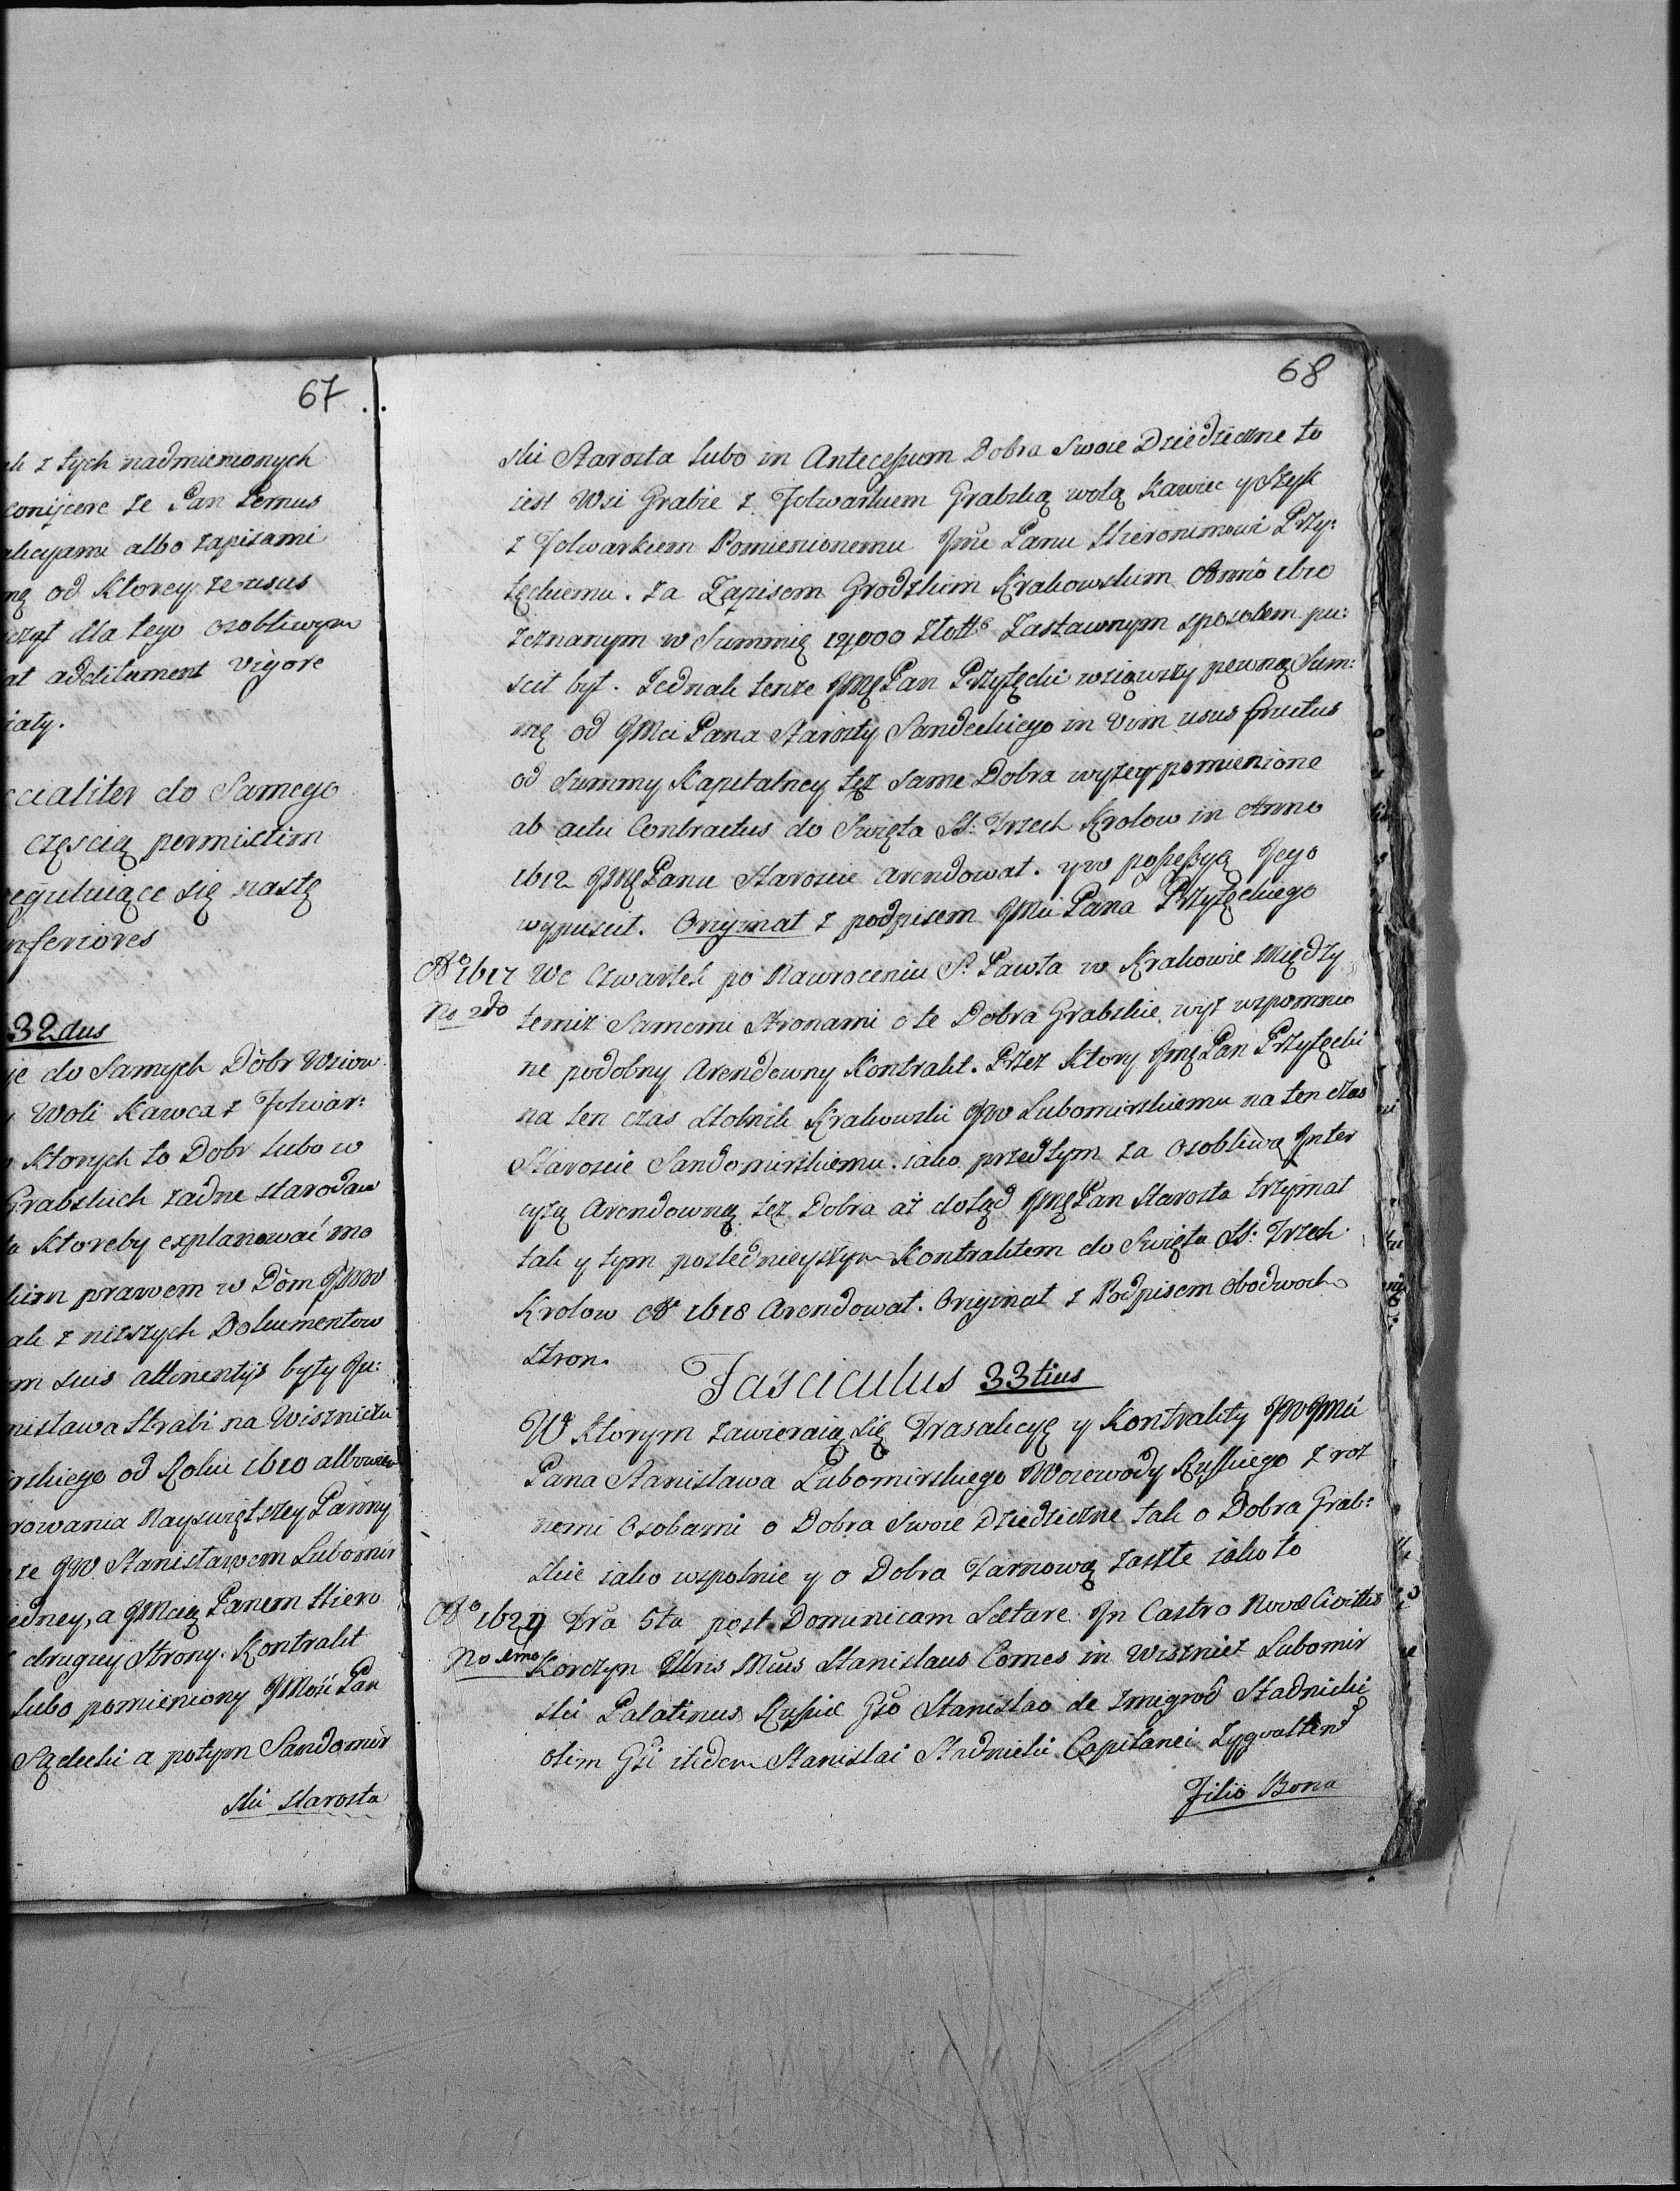 67
z tych nadmienionych
conijcere że Pan Lernus
albo zapisami
od Ktorey ze usus
dla tego osobliwym
additament vigore
do Samego
częscią permixtim
się nastę
inferiores
32dus
do Samych Dobr Wsiow
Woli Kawca z Folwar:
Ktorych to Dobr lubo w
Grabskich żadne starodaw
Ktoreby explanować mo
prawem w Dom JWW
z niższych Dokumentow
suis attinentijs były
Hrabi na Wiszniczu
od Roku 1610 albowiem
Nayswiętszey Panny
JW Stanisławem Lubomir
a JMcią Panem Hiero
drugiey Strony. Kontrakt
lubo pomieniony JMość Pan
Sądecki a potym Sandomir
ski Starosta
68
ski Starosta lubo in Antecessum Dobra Swoie Dziedziczne to
iest Wsi Grabie z Folwarkiem Grabską wolą Kawiec y Szyk
z Folwarkiem Pomienionemu Jmci Panu Hieronimowi Przy:
łęckiemu. za Zapisem Grodzkim Krakowskim Anno 1610
zeznanym w Summię 12000 Złott. Zastawnym sposobem pu:
scił był. Jednak tenże JMĘ Pan Przyłęcki wziąwszy pewną Sum:
mę od JMci Pana Starosty Sandeckiego in Vim usus fructus
od Summy Kapitalney też same Dobra wyżey pomienione
ab actu Contractus do Swięta SS: Trzech Krolow in Anno
1612 JMĘ Panu Staroscie Arendował. y w possessyą Jego
wypuscił. Originał z podpisem JMci Pana Przyłęckiego
Ao 1617 We Czwartek po Nawroceniu S. Pawła w Krakowie Między
No 2do temiż Samemi Stronami o te Dobra Grabskie wyż wspomnio
ne podobny Arendowny Kontrakt. Przez Ktory Jmę Pan Przyłęcki
na ten czas Stolnik Krakowski JW Lubomirskiemu na ten czas
Staroscie Sandomirskiemu. iako przedtym za Osobliwą Inter
cyzą Arendowną też Dobra aż dotąd JMĘ Pan Starosta trzymał
tak y tym poslednieyszym Kontraktem do Swięta SS: Trzech
Krolow Ao 1618 Arendował. Originał z Podpisem Obodwoch
stron.
Fasciculus 33tius
W Ktorym zawieraią się Trasakcye y Kontrakty JWJMci
Pana Stanisława Lubomirskiego Woiewody Ruskiego z roż
nemi Osobami o Dobra Swoie Dziedziczne tak o Dobra Grab:
skie iako wspolnie y o Dobra Tarnową zaszłe iako to
Ao 1629 Fra 5ta post Dominicam Laetare In Castro Novae Civittis
No 1mo Korczyn Illris Mcus Stanislaus Comes in Wisznicz Lubomir
ski Palatinus Russiae Gso Stanislao de Zmigrod Stadnicki
olim Gsi itidem Stanislai Stadnicki Capitanei Zygvoltend
Filio Bona